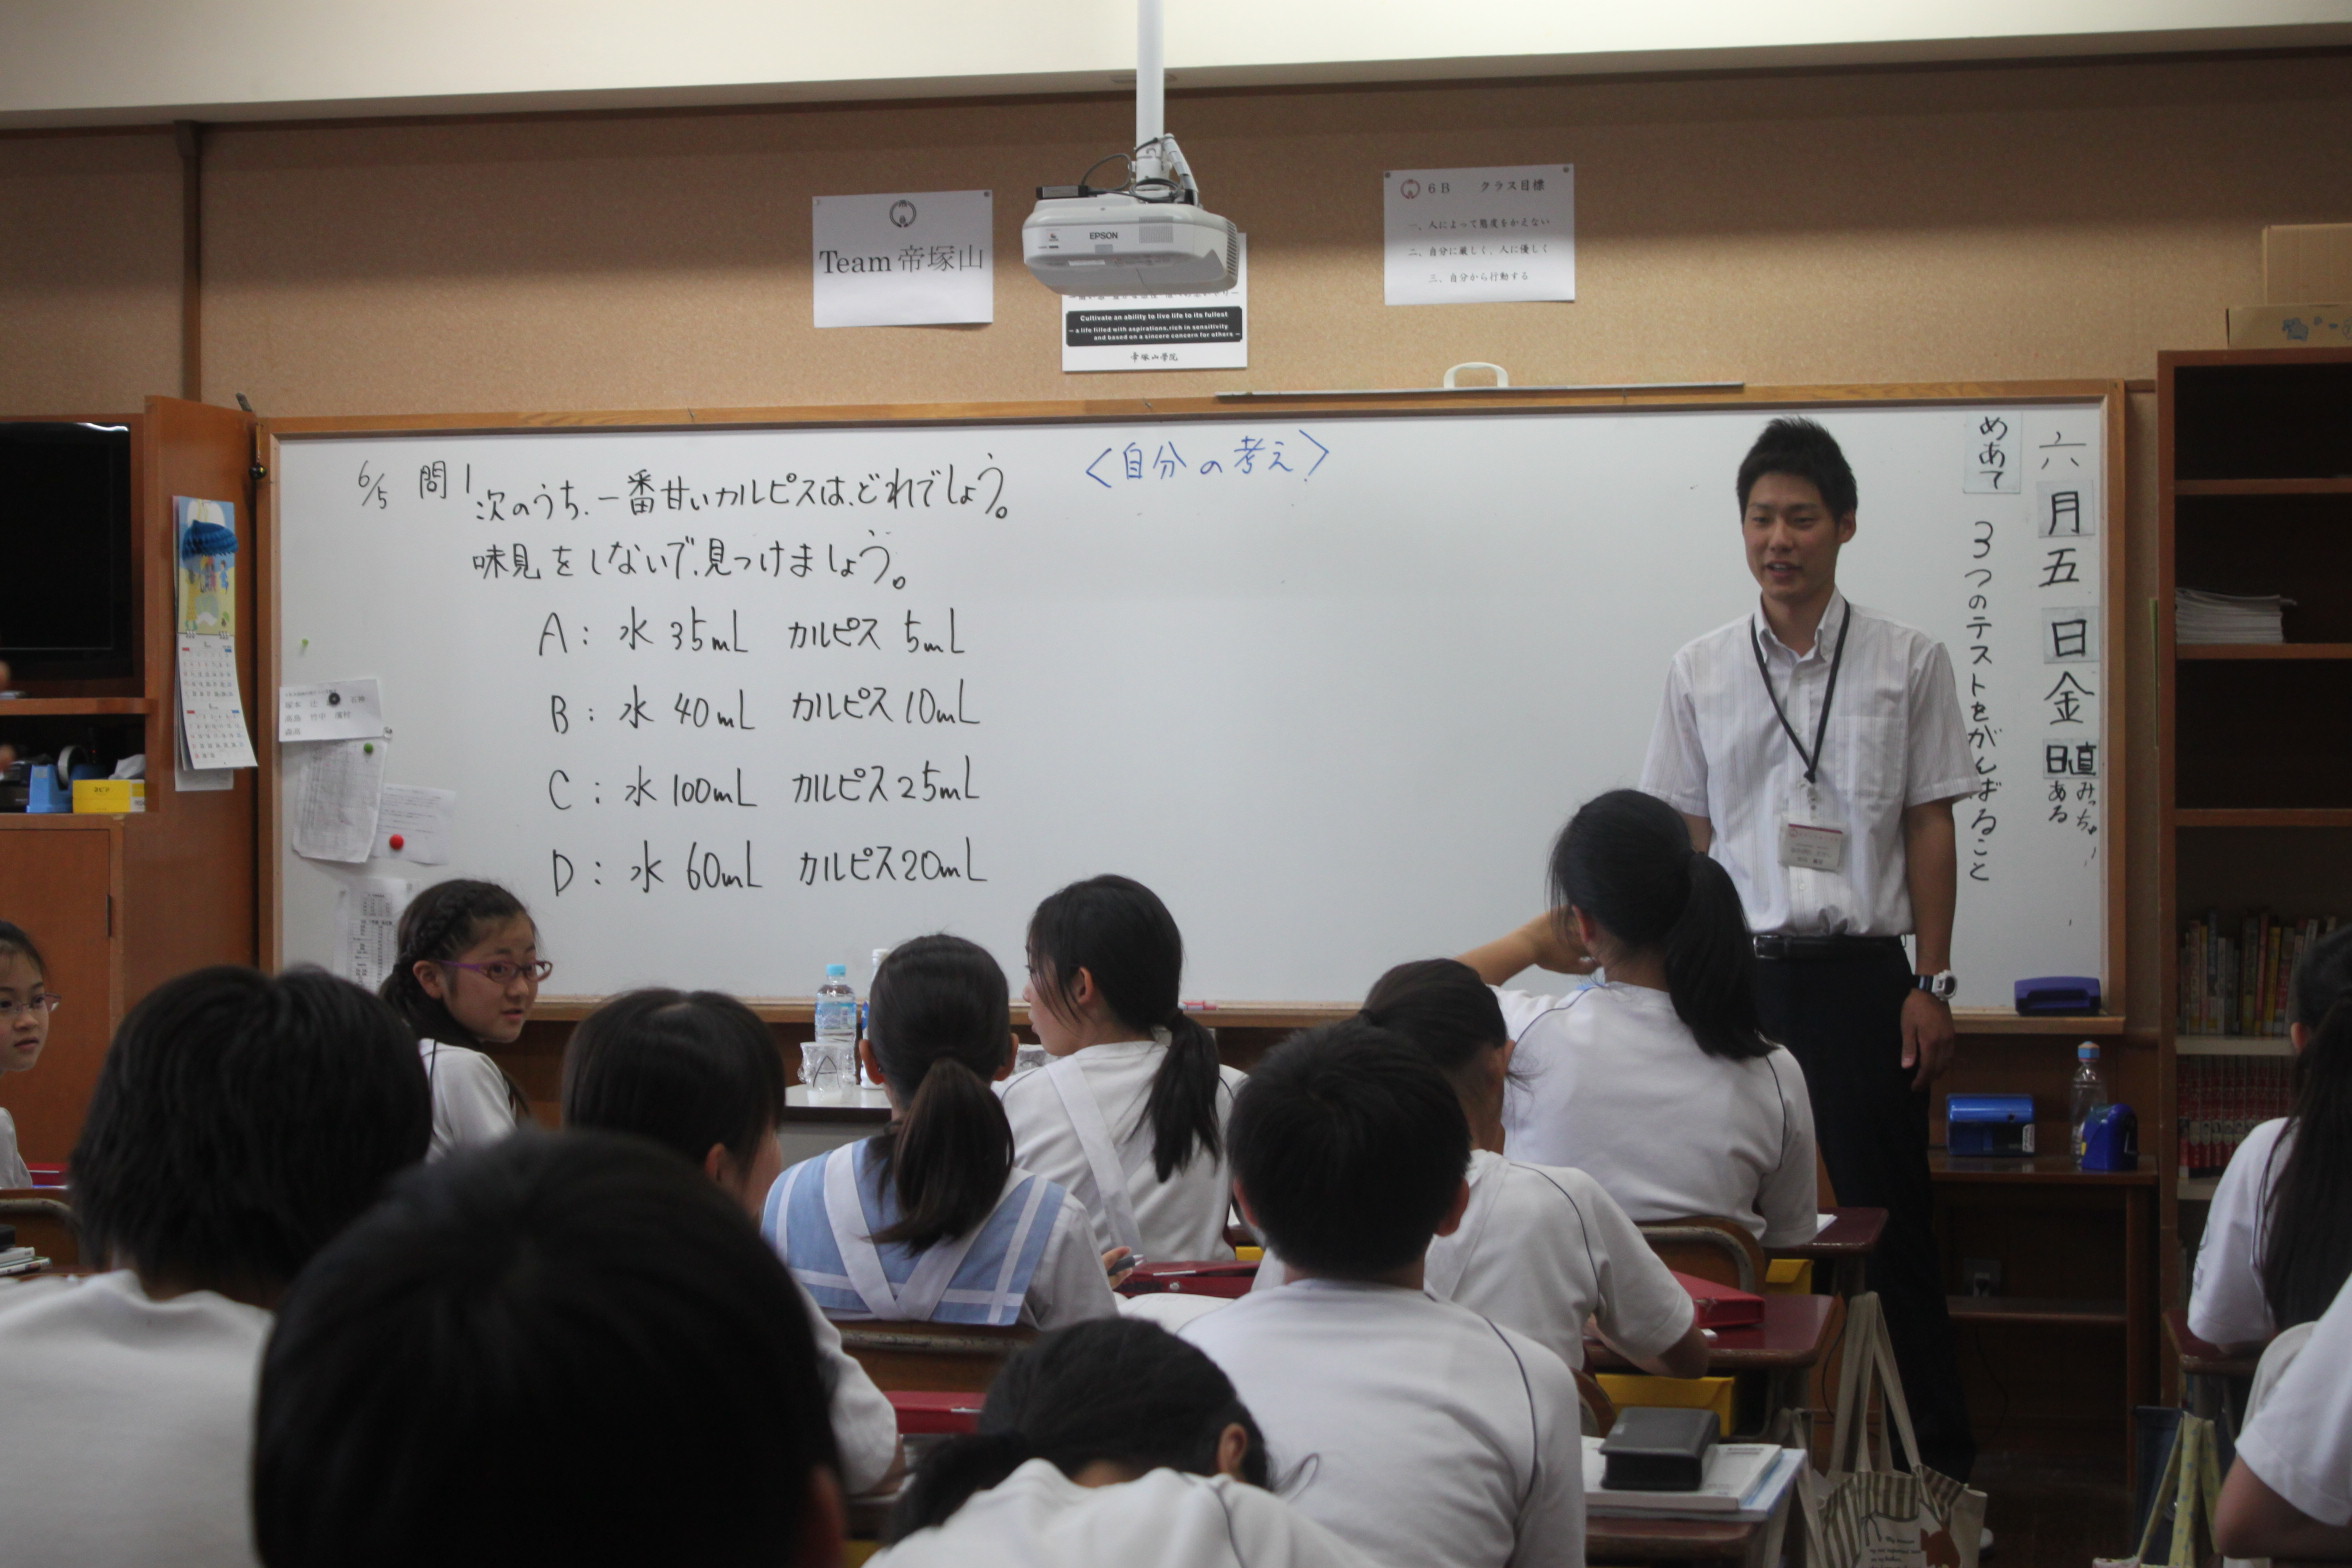 Team 帝塚山
EPSON
Cultivate an ability to live life to its fullest
— a life filled with aspirations, rich in sensitivity
and based on a sincere concern for others —
帝塚山学院
6B クラス目標
一、人によって態度をかえない
二、自分に厳しく、人に優しく
三、自分から行動する
6/5 問1
次のうち、一番甘いカルピスは、どれでしょう。
味見をしないで、見つけましょう。
A: 水 35mL カルピス 5mL
B: 水 40mL カルピス 10mL
C: 水 100mL カルピス 25mL
D: 水 60mL カルピス 20mL
<自分の考え>
六月五日金
日直
みっちゅ
ある
めあて
3つのテストをがんばること
A